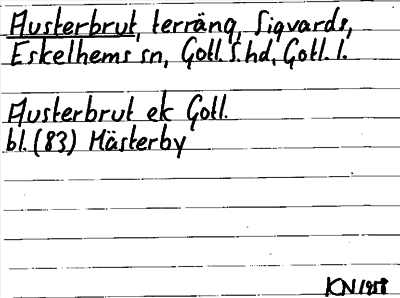 Austerbrut, terräng, Sigvards,
Eskelhems sn, Gotl. S. hd, Gotl. l.
Austerbrut ek Gotl.
bl. (83) Mästerby
KN 1958